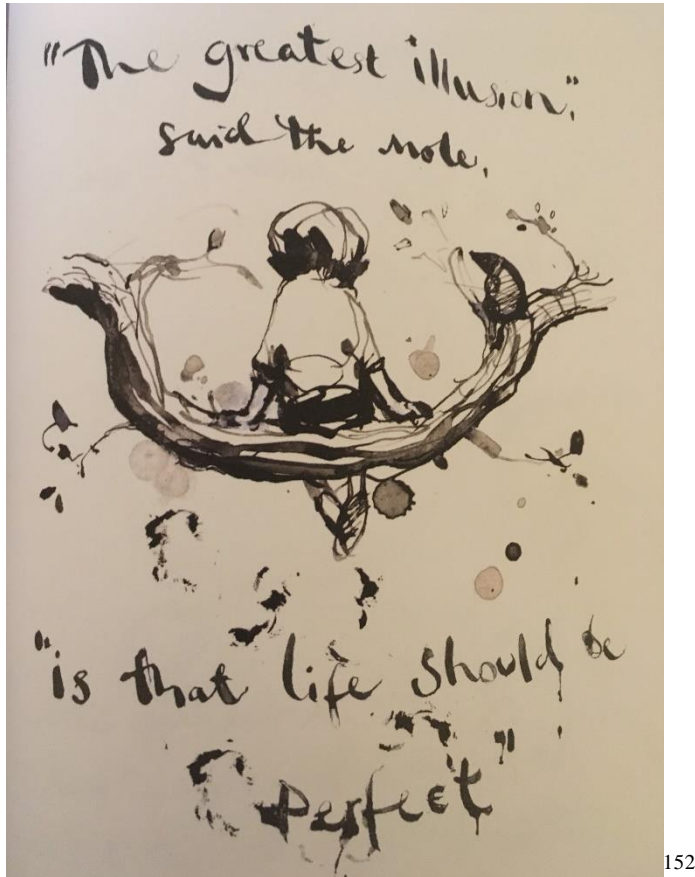 "The greatest illusion",
said the mole,
"is that life should be
perfect"
152